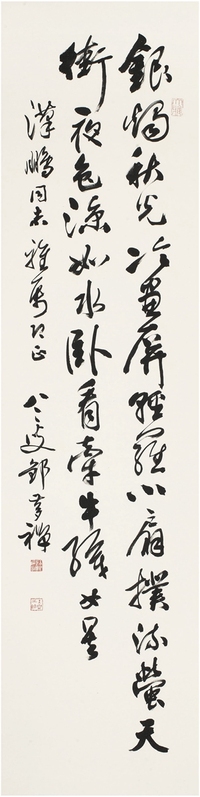 銀燭秋光冷畫屏輕羅小扇撲流螢天
街夜色涼如水臥看牽牛織女星
漢鵬同志雅屬正 八二叟鄒夢禪